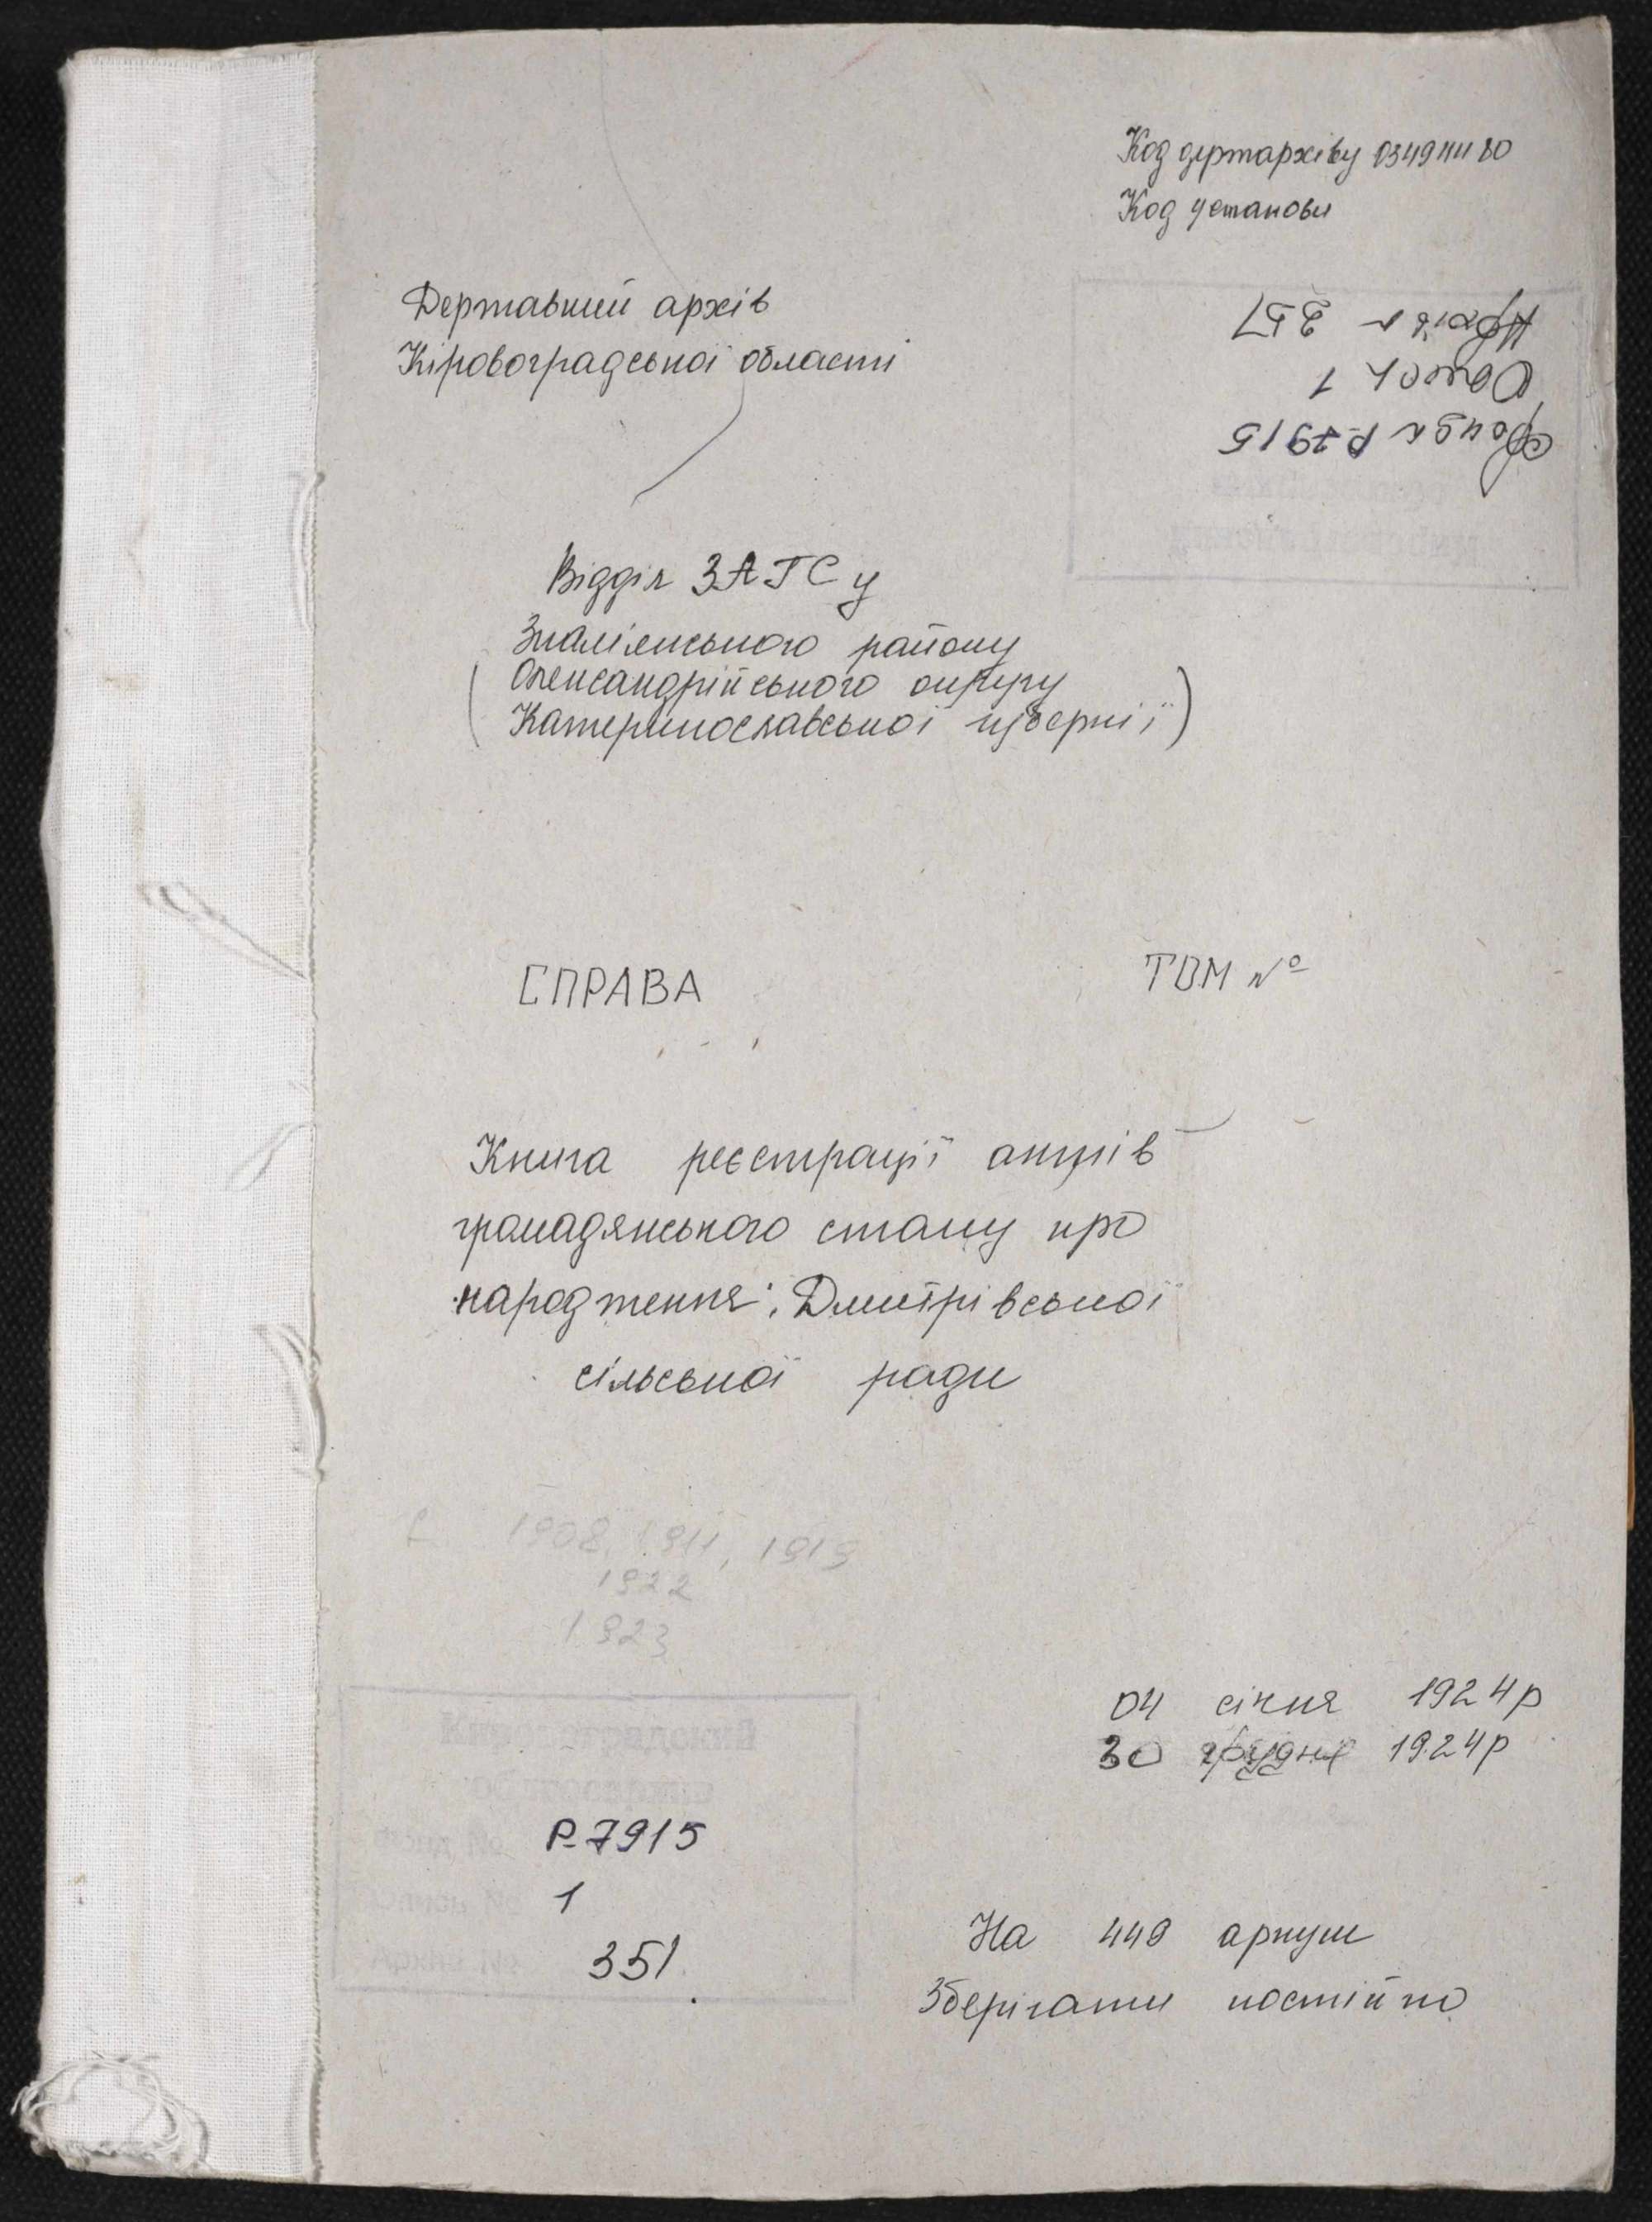 Код держархіву 03494480
Код установи
Державний архів
Кіровоградської області
Фонд Р-7915
Опис 1
Відділ ЗАГСу
Знам'янського району
(Олександрійського округу
Катеринославської губернії)
СПРАВА
ТОМ №
Книга реєстрації актів
громадянського стану про
народження: Дмитрівської
сільської ради
1908, 1911, 1919
1922
1923
04 січня 1924р
30 грудня 1924р
Р-7915
1
351
На 449 аркуш
Зберігати постійно